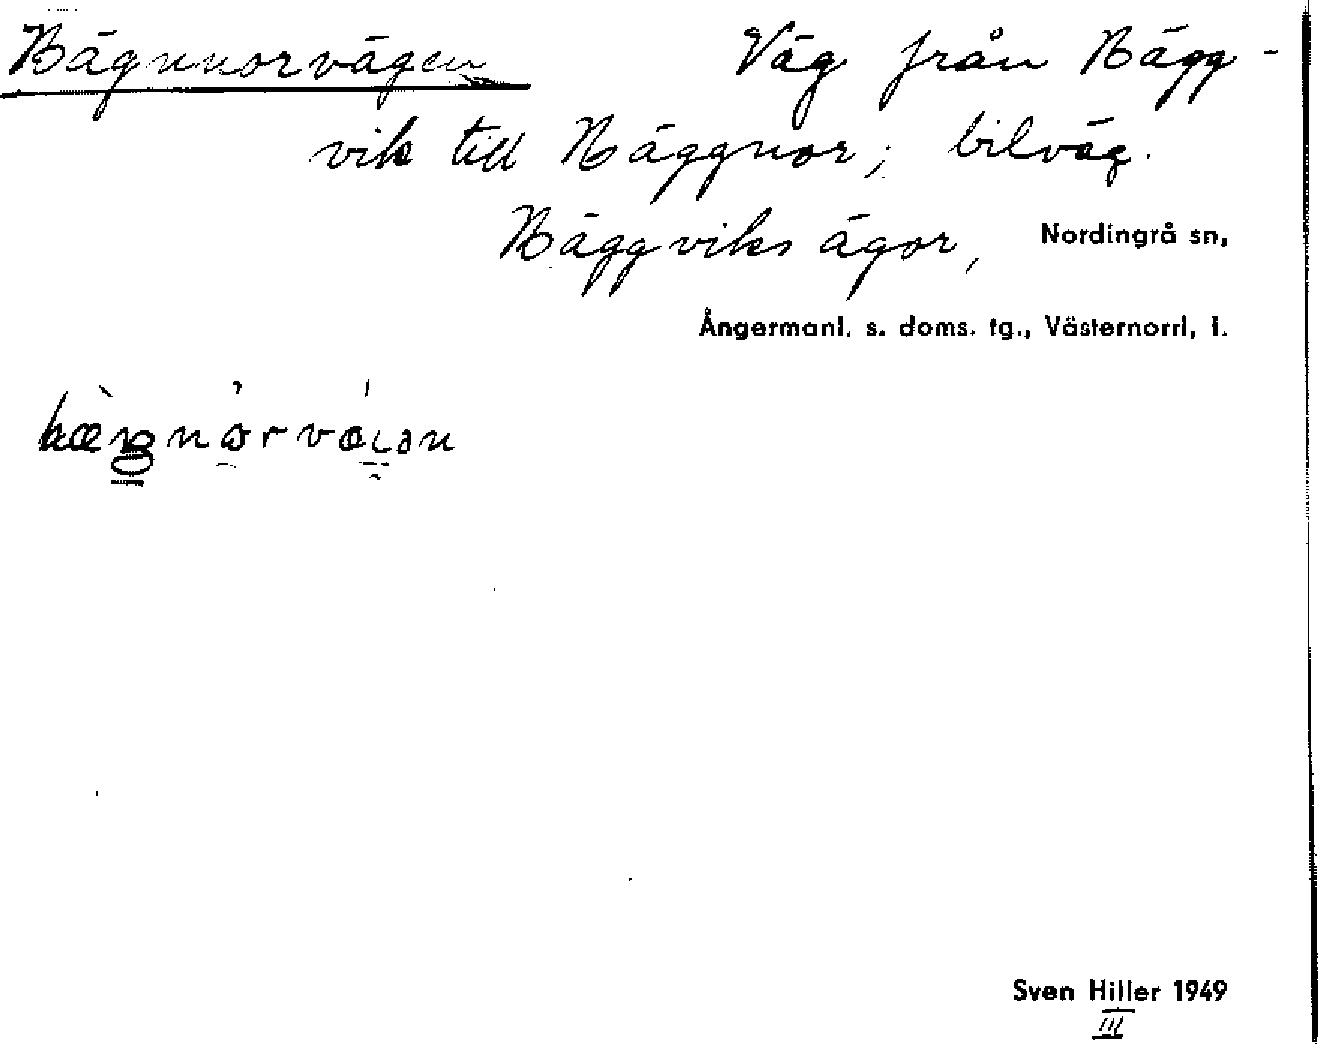 Bägnnorvägen Väg från Bägg-
vik till Bäggnor; bilväg.
Bäggviks ägor, Nordingrå sn,
Ångermanl. s. doms. tg., Västernorrl. l.
Sven Hiller 1949
III